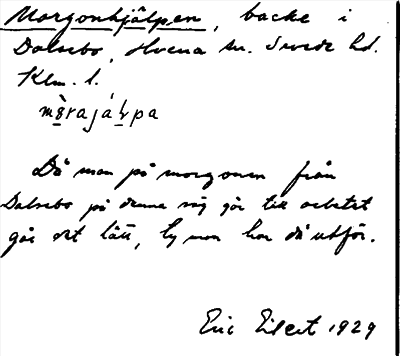 Morgonhjälpen, backe i
Dalsebo, Hvena sn. Sevede hd.
Klm. l.
Då man på morgonen från
Dalsebo på denna väg går till arbetet
går det lätt, ty man har då utför.
Eric Elgert 1929